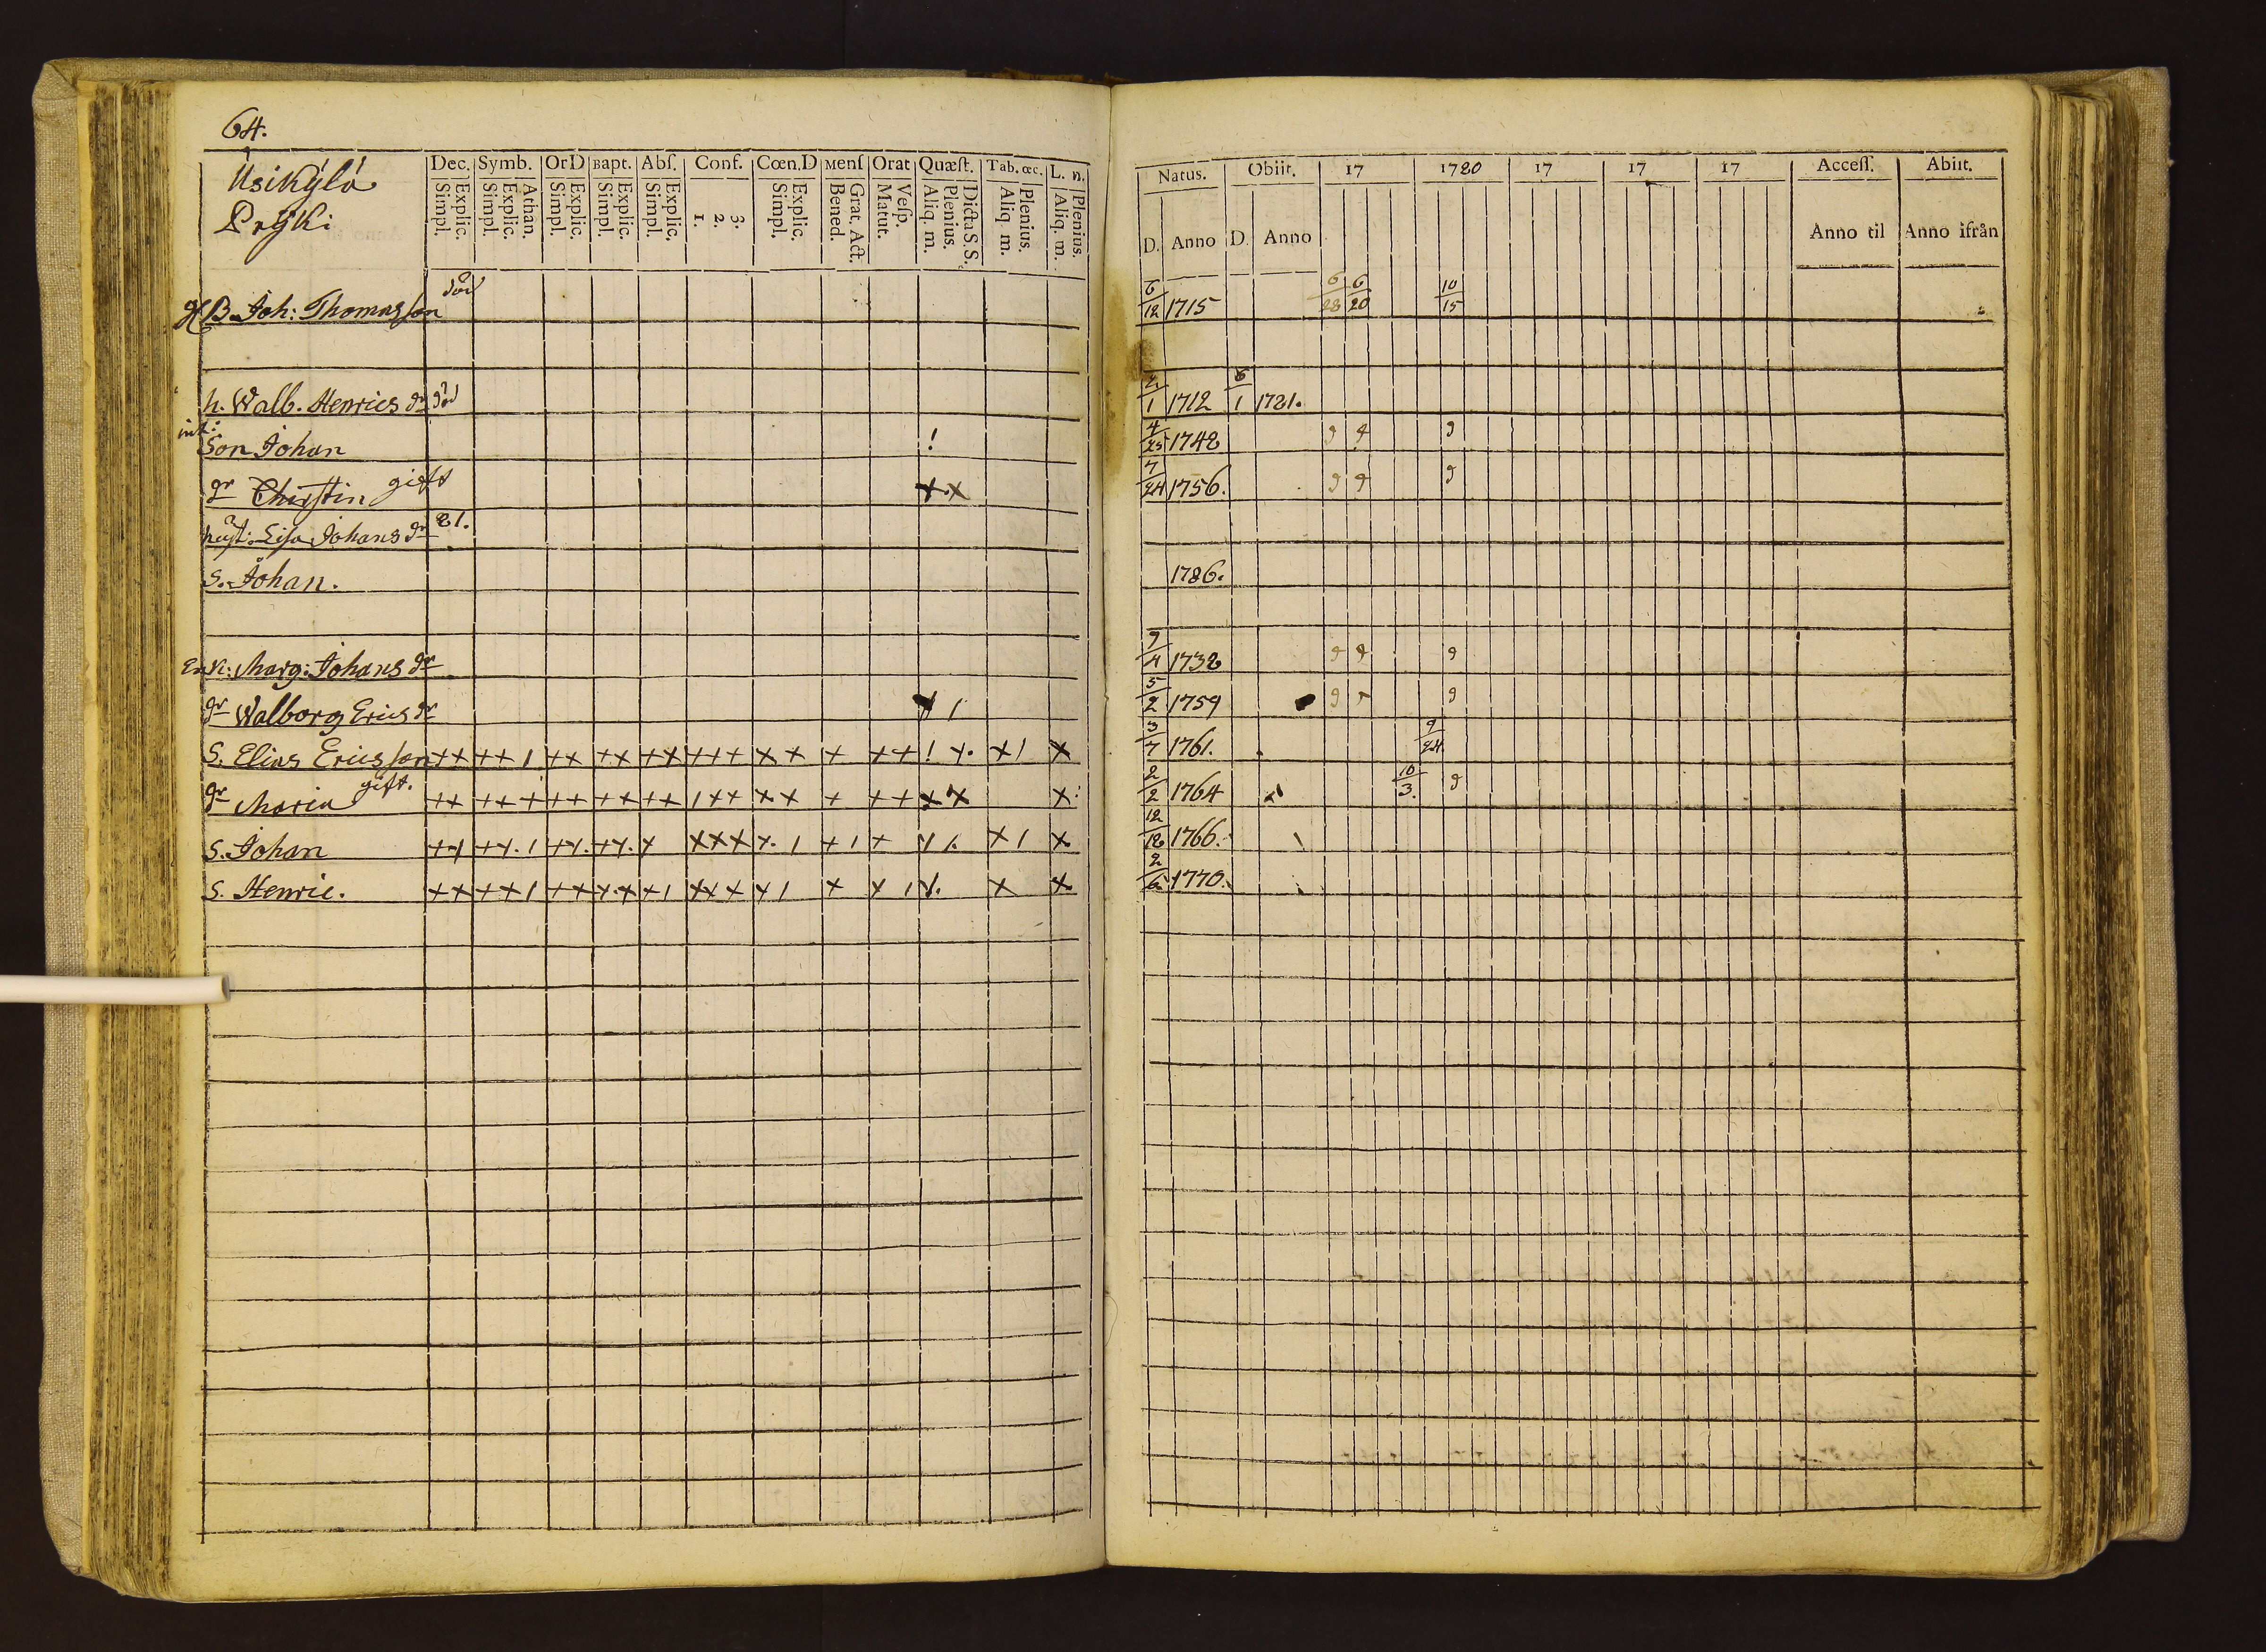 64.
Usikylä
Pryki
Dec. Symb. OrD Bapt. Abſ. Conf. Cœn.D Menſ Orat Quæſt. Tab. œc. L. n.
Simpl. Explic. Simpl. Explic. Athan. Simpl. Explic. Simpl. Explic. Simpl. Explic. 1. 2. 3. Simpl. Explic. Bened. Grat. Act. Matut. Veſp. Aliq. m. Plenius. Dicta S. S. Aliq. m. Plenius. Aliq. m. Plenius.
B. Joh: Thomasson död
h. Walb. Henrics dr död
Son Johan !
dr Christin gift x x
hust: Lisa Johans dr 81.
S. Johan.
Enk: Marg: Johans dr
dr Walborg Erics dr /
S. Elias Ericsson ++ ++ / ++ ++ ++ +++ ++ + ++ ! +. + / +
dr Maria gift. ++ +++ ++ ++ ++ / ++ ++ + ++ ++ +
S. Johan ++ ++. / ++. ++. + +++ +. / + / + / /. + / +
S. Henric. ++ ++ / ++ +.+ + / +++ + / + + / /. + +
Natus. Obiit. 17 1780 17 17 17 Acceſſ. Abiit.
D. Anno D. Anno Anno til Anno ifrån
6/12 1715 6/28 6/20 10/15
1 1712 1 1781.
4/25 1742 9 9 9
7/24 1756. 9 9 9
1786.
9/4 1732 9 9 9
5/2 1759 9 9
3/7 1761. 9/24
2/2 1764 10/3. 9
12/12 1766.
2/6 1770.